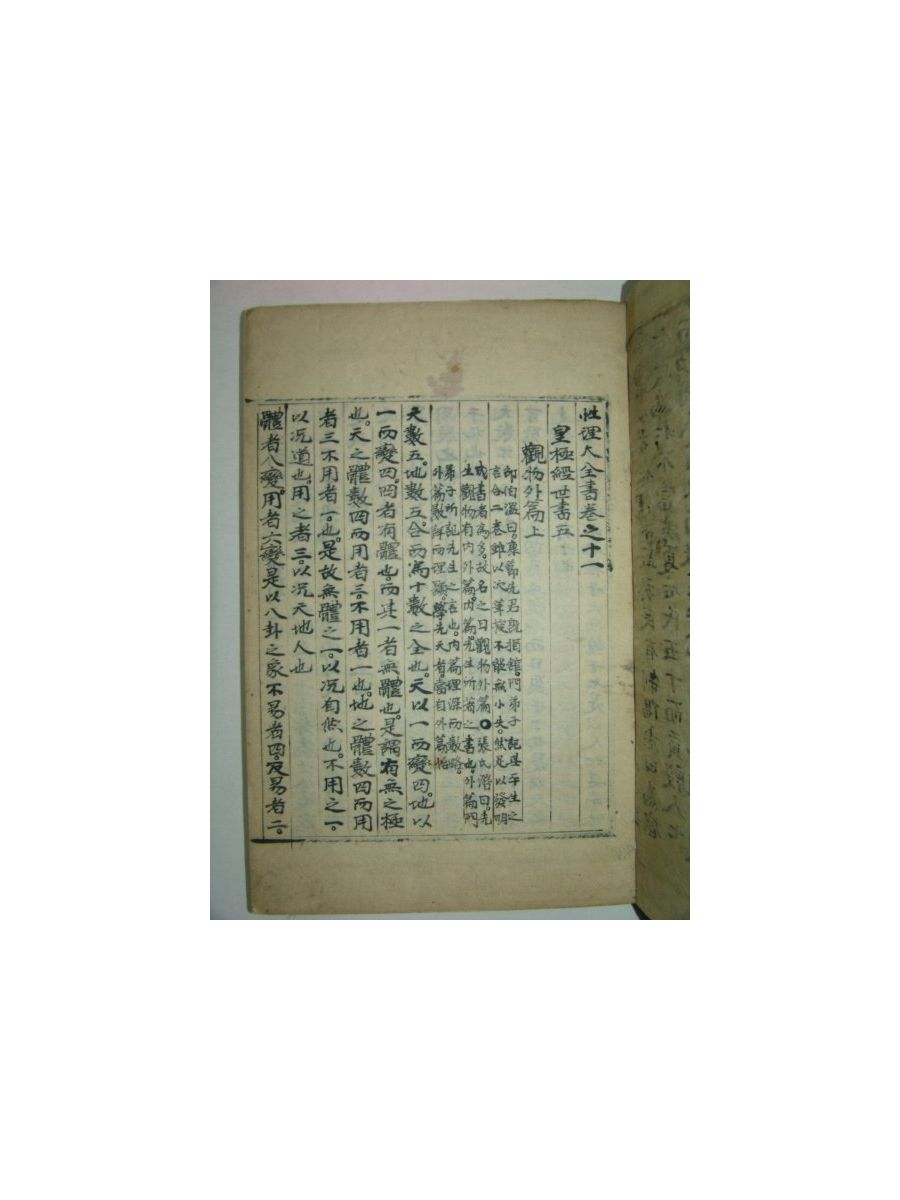 性理大全書卷之十一
皇極經世書五
觀物外篇上
邵伯溫曰。康節先君旣捐館。門弟子記其平生之
言合二卷雖以次筆授不能無小失。然足以發明
成書者爲多。故名之曰觀物外篇●張氏曰。先
生觀物有內外篇。內篇。先生所著之書也。外篇門
弟子所記先生之言也。內篇理深而數略。
外篇數詳而理顯。學先天者。當自外篇始
天數五。地數五。合而爲十數之全也。天以一而變四。地以
一而變四。四者有體也。而其一者無體也。是謂有無之極
也。天之體數四而用者三。不用者一也。地之體數四而用
者三不用者一。也。是故無體之一。以况自然也。不用之一。
以况道也。用之者三。以况天地人也
體者八變。用者六變是以八卦之象不易者四。反易者二。